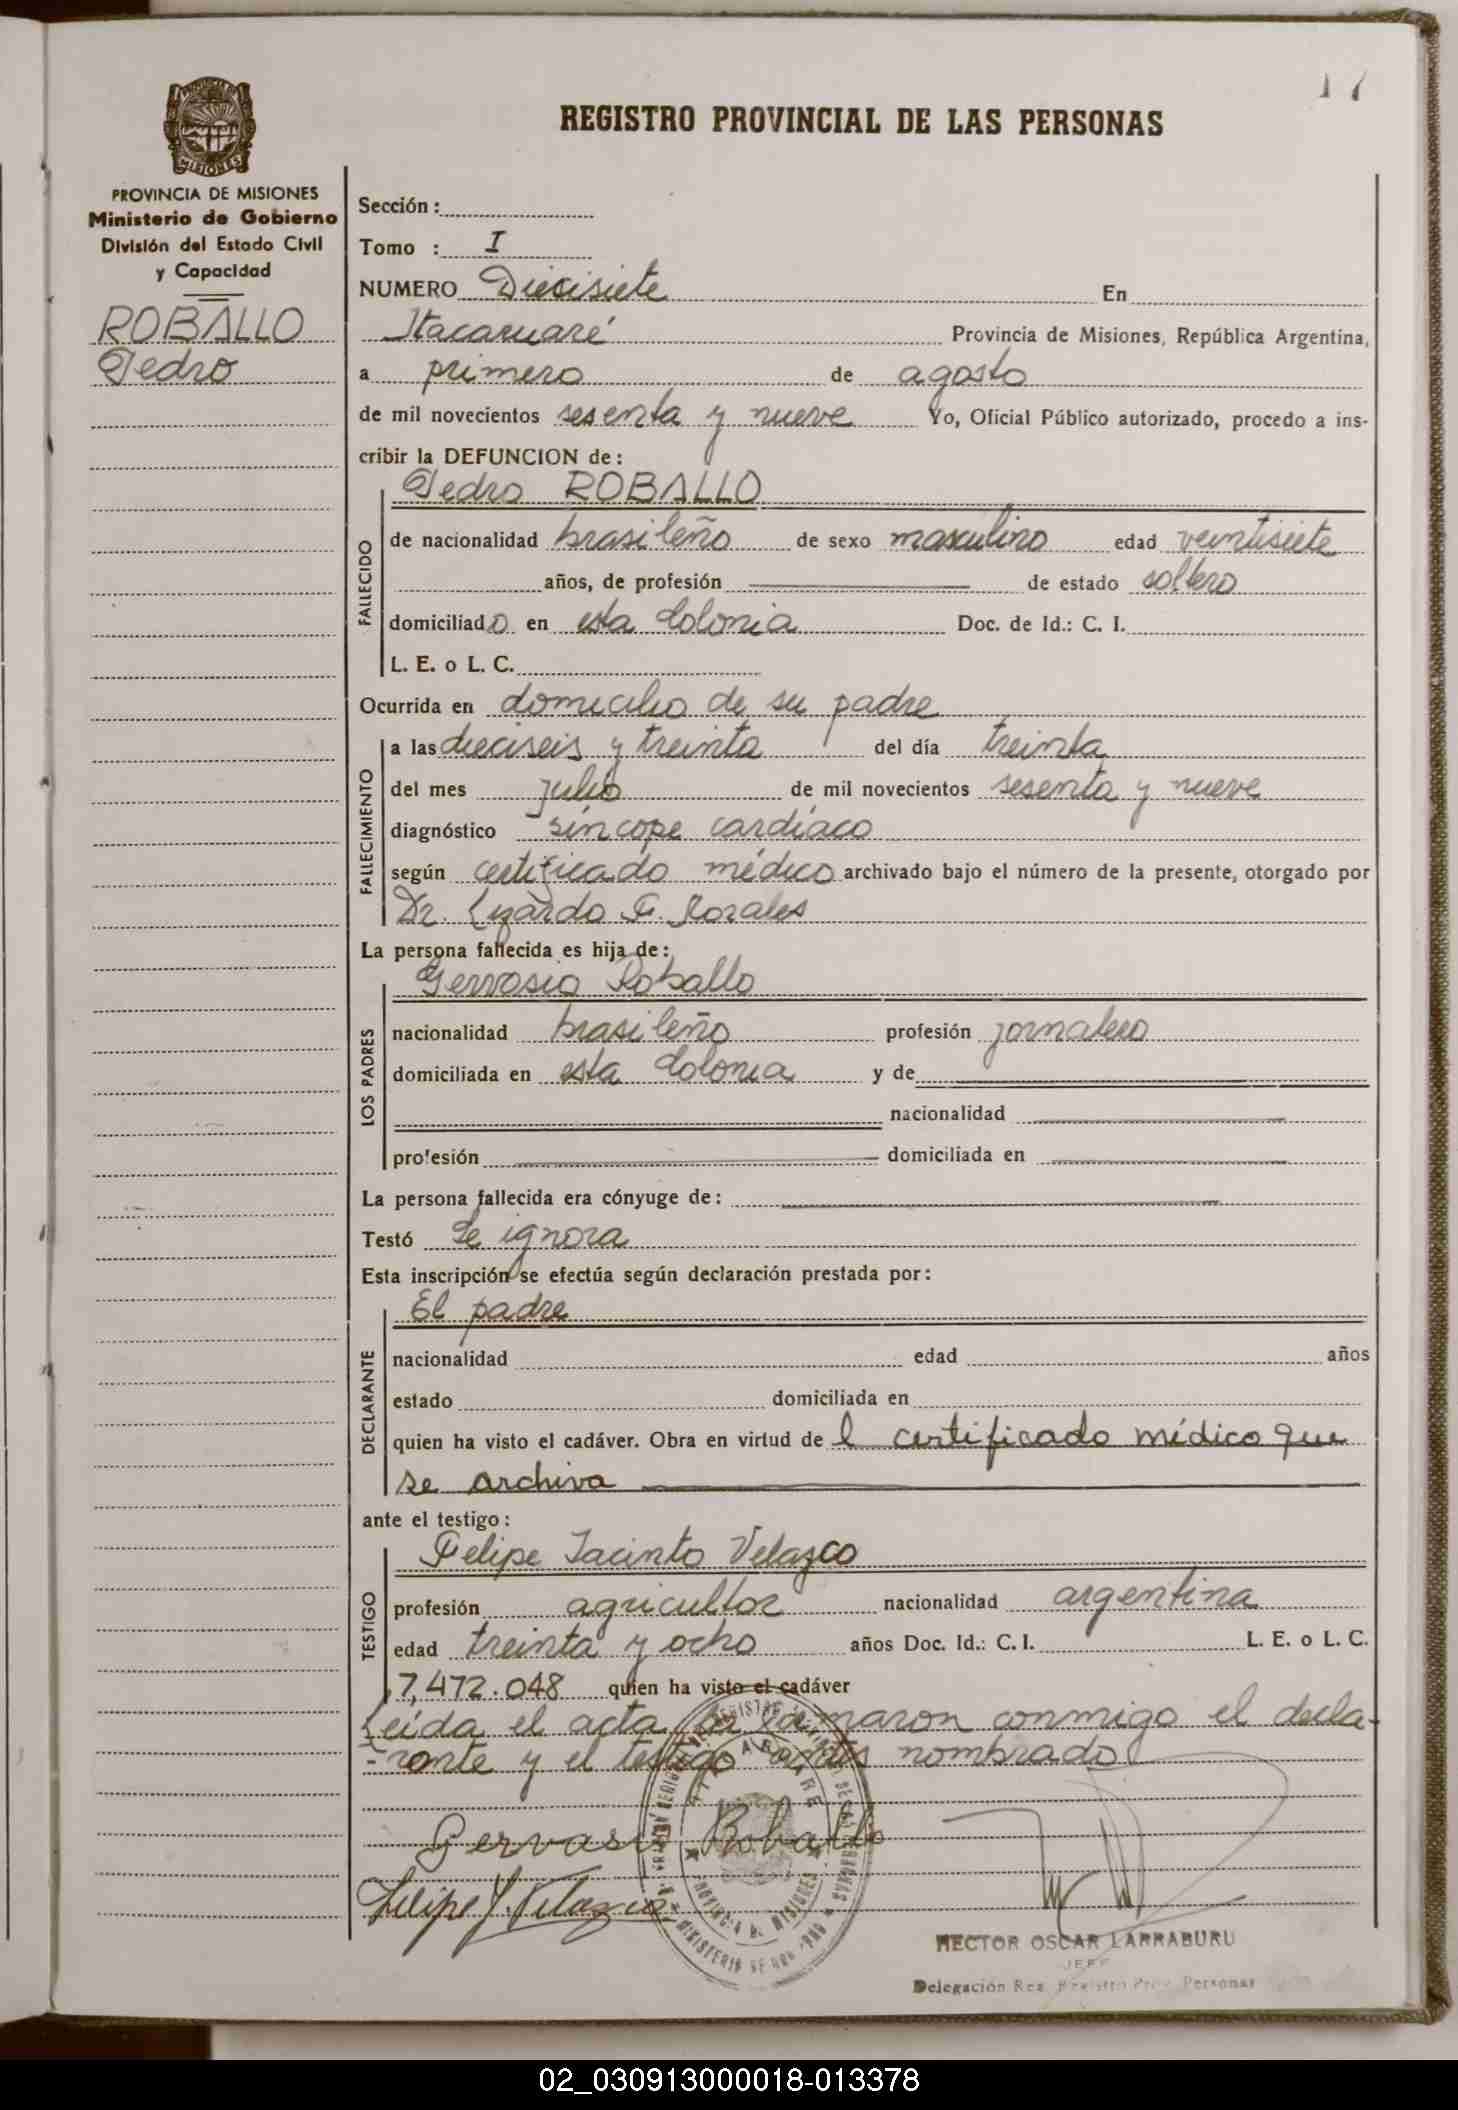 17
REGISTRO PROVINCIAL DE LAS PERSONAS
MISIONES
PROVINCIA DE MISIONES
Ministerio de Gobierno
División del Estado Civil
y Capacidad
ROBALLO
Pedro
Sección :
Tomo : I
NUMERO Diecisiete En
Itacaruaré Provincia de Misiones, República Argentina,
a primero de agosto
de mil novecientos sesenta y nueve Yo, Oficial Público autorizado, procedo a ins-
cribir la DEFUNCION de :
FALLECIDO
Pedro ROBALLO
de nacionalidad brasileño de sexo masculino edad veintisiete
años, de profesión de estado soltero
domiciliado en esta Colonia Doc. de Id.: C. I.
L. E. o L. C.
Ocurrida en domicilio de su padre
FALLECIMIENTO
a las dieciseis y treinta del día treinta
del mes julio de mil novecientos sesenta y nueve
diagnóstico síncope cardíaco
según certificado médico archivado bajo el número de la presente, otorgado por
Dr. Lizardo F. Rozales
La persona fallecida es hija de :
LOS PADRES
Gervasio Roballo
nacionalidad brasileño profesión jornalero
domiciliada en esta Colonia y de
nacionalidad
profesión domiciliada en
La persona fallecida era cónyuge de :
Testó Se ignora
Esta inscripción se efectúa según declaración prestada por :
DECLARANTE
El padre
nacionalidad edad años
estado domiciliada en
quien ha visto el cadáver. Obra en virtud de l certificado médico que
se archiva
ante el testigo :
TESTIGO
Felipe Jacinto Velazco
profesión agricultor nacionalidad argentina
edad treinta y ocho años Doc. Id.: C. I. L. E. o L. C.
7,472.048 quien ha visto el cadáver
Leída el acta la firmaron conmigo el decla-
-rante y el testigo antes nombrado
Gervasio Roballo
Felipe J. Velazco
PROVINCIA DE MISIONES
HECTOR OSCAR LARRABURU
JEFE
Delegación Reg. Registro Prov. Personas
02_030913000018-013378